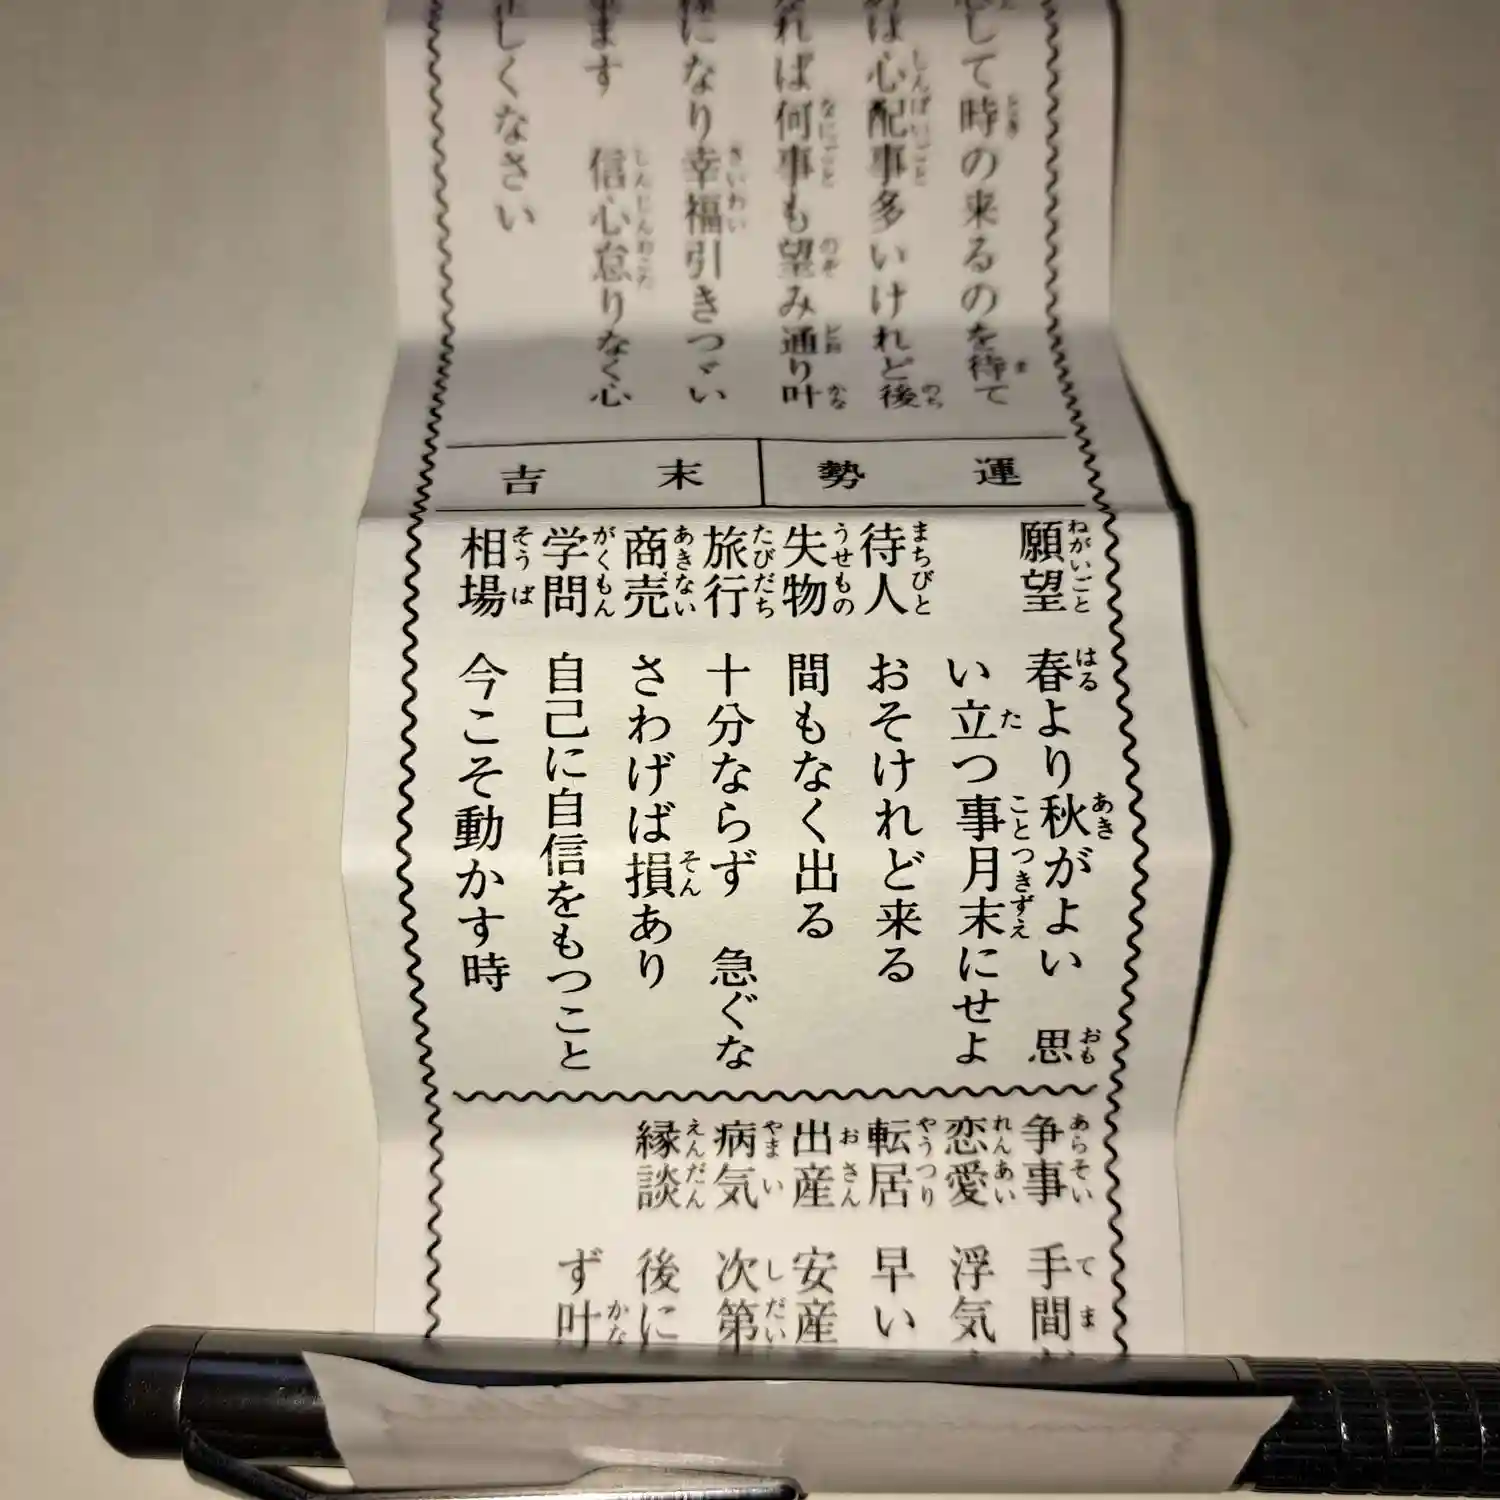 して時の来るのを待て
は心配事多いけれど後
れば何事も望み通り叶
になり幸福引きつゞい
ます　信心怠りなく心
しくなさい
運勢　末吉
願望　春より秋がよい　思
い立つ事月末にせよ
待人　おそけれど来る
失物　間もなく出る
旅行　十分ならず　急ぐな
商売　さわげば損あり
学問　自己に自信をもつこと
相場　今こそ動かす時
争事　手間
恋愛　浮気
転居　早い
出産　安産
病気　次第
縁談　後に
ず叶